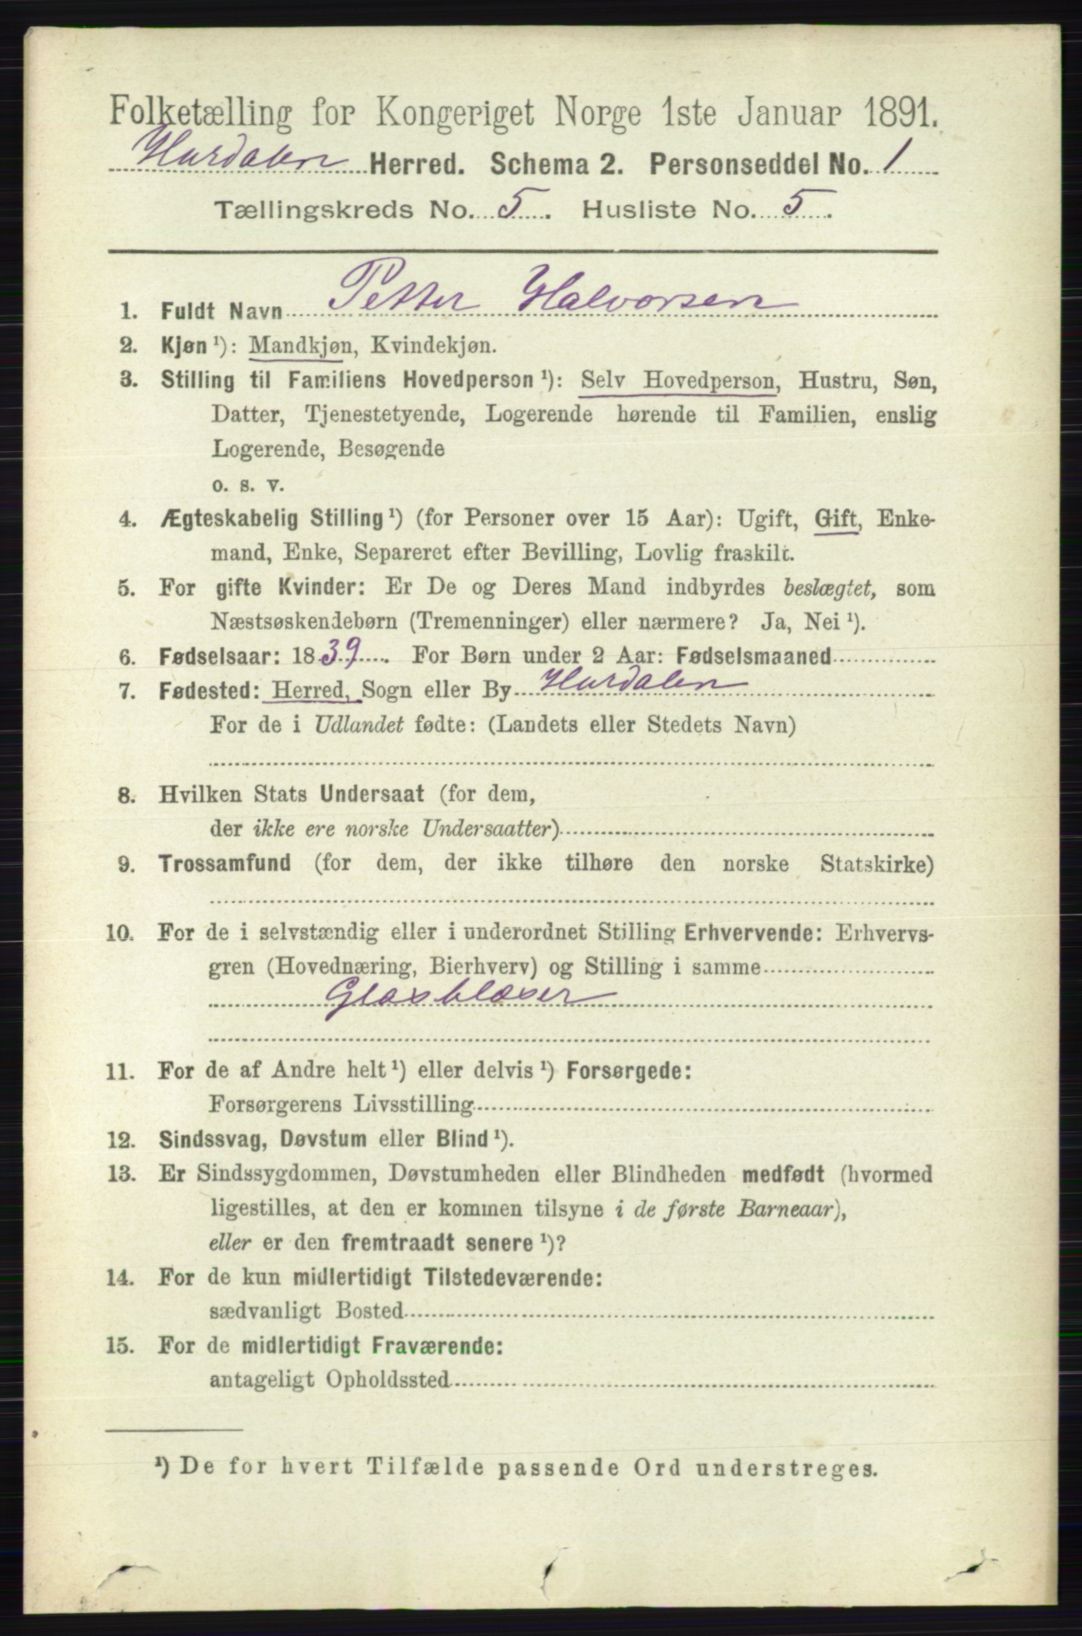 Folketælling for Kongeriget Norge 1ste Januar 1891.
Hurdalen Herred. Schema 2. Personseddel No. 1
Tællingskreds No. 5. Husliste No. 5.
1. Fuldt Navn Petter Halvorsen
2. Kjøn ¹): Mandkjøn, Kvindekjøn.
3. Stilling til Familiens Hovedperson ¹): Selv Hovedperson, Hustru, Søn,
Datter, Tjenestetyende, Logerende hørende til Familien, enslig
Logerende, Besøgende
o. s. v.
4. Ægteskabelig Stilling ¹) (for Personer over 15 Aar): Ugift, Gift, Enke-
mand, Enke, Separeret efter Bevilling, Lovlig fraskilt.
5. For gifte Kvinder: Er De og Deres Mand indbyrdes beslægtet, som
Næstsøskendebørn (Tremenninger) eller nærmere? Ja, Nei ¹).
6. Fødselsaar: 1839. For Børn under 2 Aar: Fødselsmaaned
7. Fødested: Herred, Sogn eller By Hurdalen
For de i Udlandet fødte: (Landets eller Stedets Navn)
8. Hvilken Stats Undersaat (for dem,
der ikke ere norske Undersaatter)
9. Trossamfund (for dem, der ikke tilhøre den norske Statskirke)
10. For de i selvstændig eller i underordnet Stilling Erhvervende: Erhvervs-
gren (Hovednæring, Bierhverv) og Stilling i samme
Glasblaser
11. For de af Andre helt ¹) eller delvis ¹) Forsørgede:
Forsørgerens Livsstilling
12. Sindssvag, Døvstum eller Blind ¹).
13. Er Sindssygdommen, Døvstumheden eller Blindheden medfødt (hvormed
ligestilles, at den er kommen tilsyne i de første Barneaar),
eller er den fremtraadt senere ¹)?
14. For de kun midlertidigt Tilstedeværende:
sædvanligt Bosted
15. For de midlertidigt Fraværende:
antageligt Opholdssted
¹) De for hvert Tilfælde passende Ord understreges.